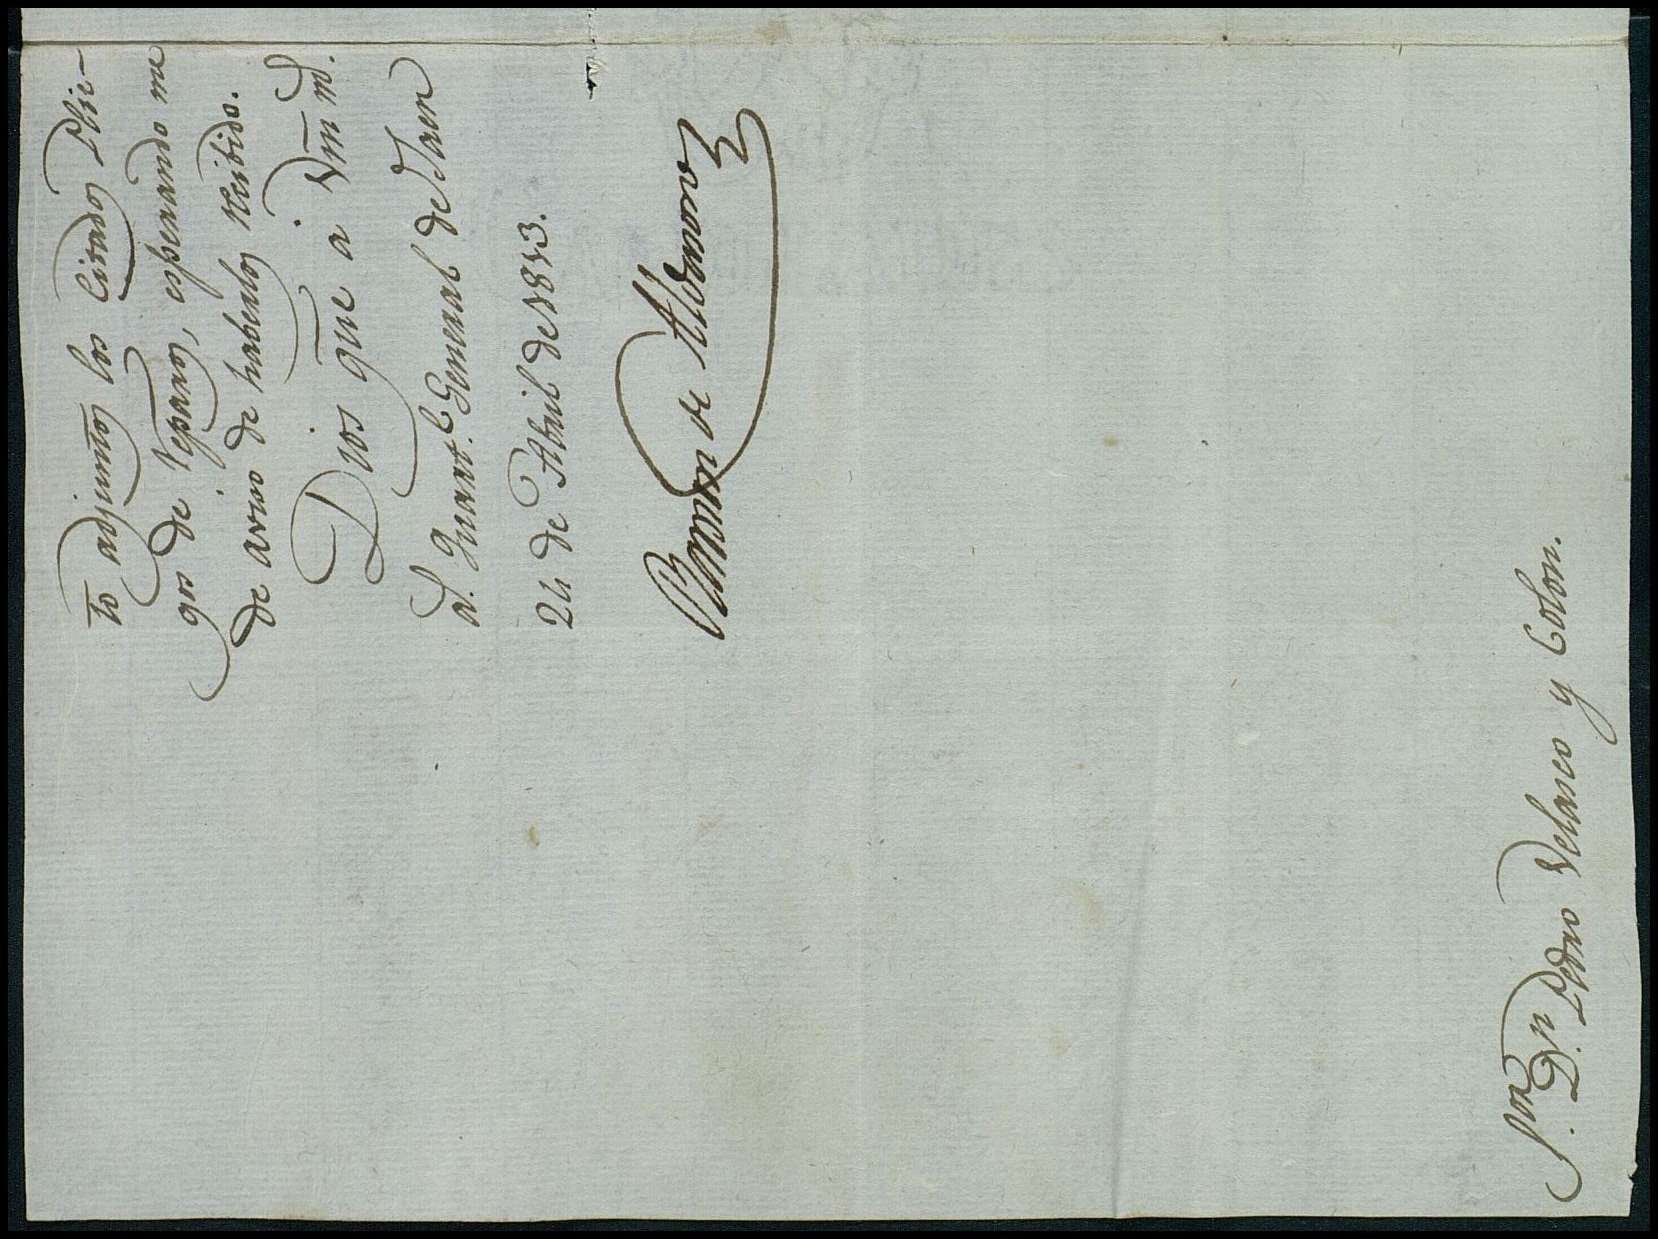 to adjuntos los citados Plie-
gos de reparos, esperando me
de aviso de haberlos recibido.
Dios gue. a Vm. m. a.
Quart.l General de Jaen
24 de Abril de 1813.
Ramon de Aldasoro
S.or D.n Pedro Velasco y Colon.